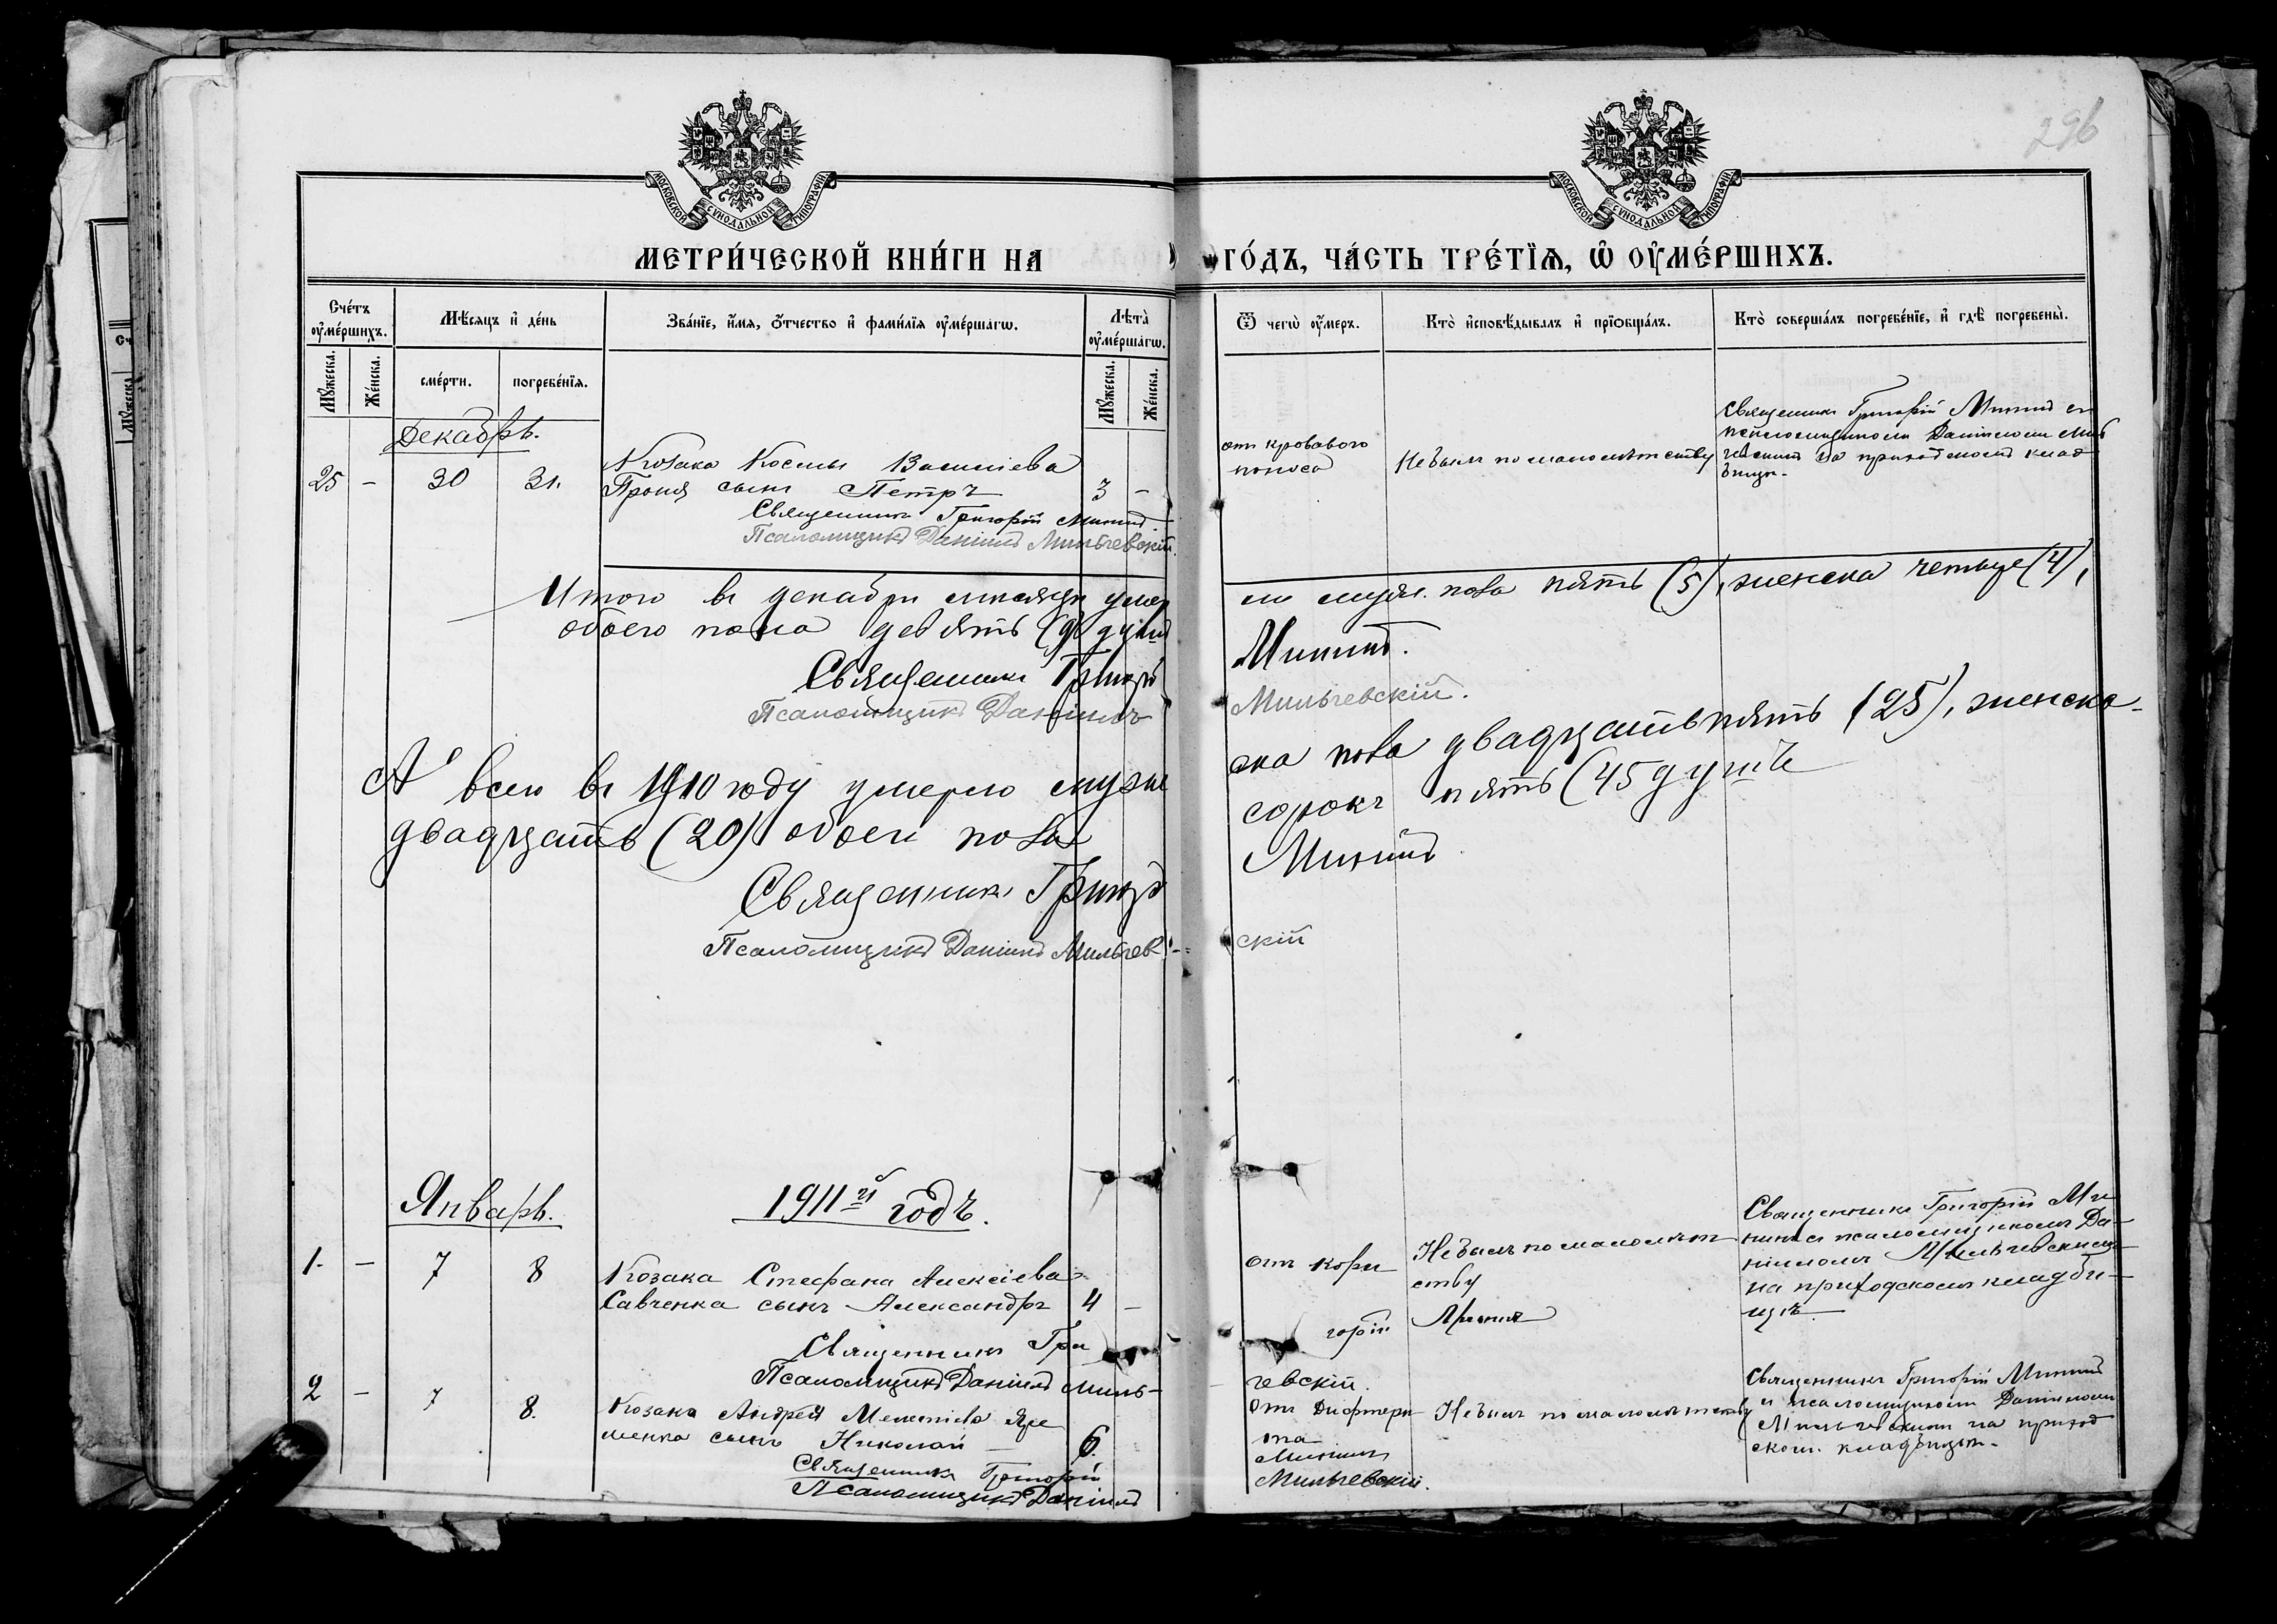 296
МОСКОВСКОЙ СѴНОДАЛЬНОЙ ТИПОГРАФІИ
МОСКОВСКОЙ СѴНОДАЛЬНОЙ ТИПОГРАФІИ
МЕТРИ́ЧЕСКОЙ КНИ́ГИ НА
ГО́ДЪ, ЧА́СТЬ ТРЕ́ТЇѦ, Ѡ҆ ОУ҆МЕ́РШИХЪ.
Сче́тъ оу҆ме́ршихъ.
Мѣ́сяцъ и҆ де́нь
Зва́нїе, и҆́мѧ, о҆́тчество и҆ фами́лїѧ оу҆ме́ршагѡ.
Лѣта̀ оу҆ме́ршагѡ.
Ѿ чегѡ̀ оу҆́меръ.
Кто̀ и҆сповѣ́дывалъ и҆ прїѡбща́лъ.
Кто̀ соверша́лъ погребе́нїе, и҆ гдѣ̀ погребены̀.
Мꙋ́жеска.
Же́нска.
сме́рти.
погребе́нїѧ.
Мꙋ́жеска.
Же́нска.
Декабрь.
25 - 30 31.
Козака Космы Василіева
сынъ Петръ 3 -
Священникъ Григорій Мининъ
Псаломщикъ Даніилъ Мильчевскій.
отъ кроваваго
поноса
Не былъ по малолѣтству
Священникъ Григорій Мининъ съ
псаломщикомъ Даніиломъ Миль
чевскимъ на приходскомъ клад
бищѣ.
Итого въ декабрѣ мѣсяцѣ умер
ло муж. пола пять (5), женска четыре (4),
обоего пола девять (9) душъ
Священникъ Григорій
Мининъ.
Псаломщикъ Даніилъ
Мильчевскій.
А всего въ 1910 году умерло муже
ска пола двадцать пять (25), женска
двадцать (20) обоего пола
сорокъ пять (45 душъ
Священникъ Григорій
Мининъ
Псаломщикъ Даніилъ Мильчев-
скій
Январь.
1911й годъ.
1. - 7 8
Козака Стефана Алексіева
Савченка сынъ Александръ 4 -
Священникъ Гри
горій
Мининъ
Псаломщикъ Даніилъ Миль-
чевскій.
отъ кори
Не былъ по малолѣт
ству
Священникъ Григорій Ми
нинъ съ псаломщикомъ Да-
ніиломъ Мильчевскимъ
на приходскомъ кладби-
щѣ
2 - 7 8.
Козака Андрея Яре
менка сынъ Николай 6.
Священникъ Григорій
Мининъ
Псаломщикъ Даніилъ
Мильчевскій.
Отъ Дифтери
та
Не былъ по малолѣтству
Священникъ Григорій Мининъ
и псаломщикомъ Даніиломъ
Мильчевскимъ на приход
ском. кладбищѣ.